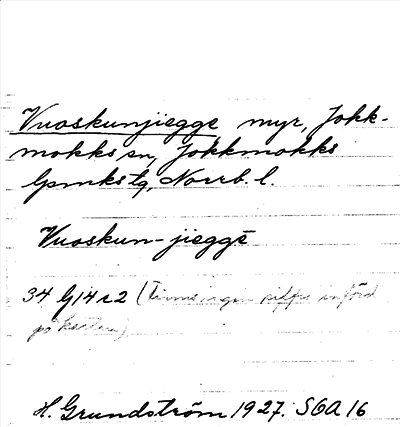 Vuoskunjiegge, myr, Jokk-
mokks sn, Jokkmokks
lpmks tg, Norrb. l.
Vuoskun-jiegge
34 G14 c2 (Finns ingen siffra införd
på kartan)
H. Grundström 1927. SOA 16